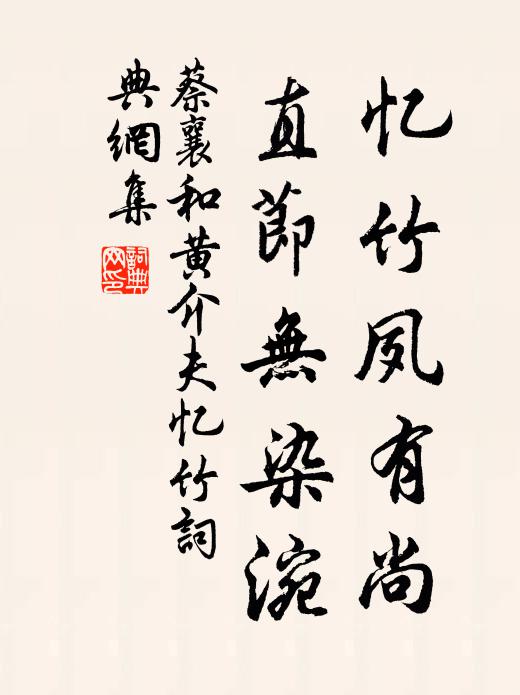 忆竹夙有尚
直節無染涴
蔡襄和黄介夫忆竹詞
典網集
詞典网印